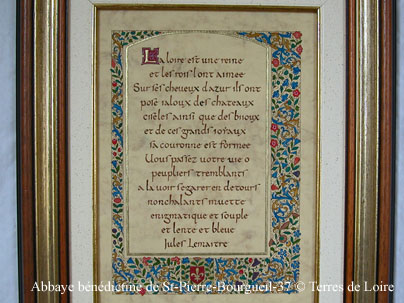 La loire est une reine
et les rois l'ont aimée
Sur ses cheveux d'azur ils ont
posé jaloux des chateaux
ciselés ainsi que des bijoux
et de ces grands joyaux
sa couronne est formée
Vous passez votre vie o
peupliers tremblants
a la voir s'egarer en detours
nonchalants muette
enigmatique et souple
et lente et bleue
Jules Lemaitre
Abbaye bénédictine de St-Pierre-Bourgueil-37 © Terres de Loire